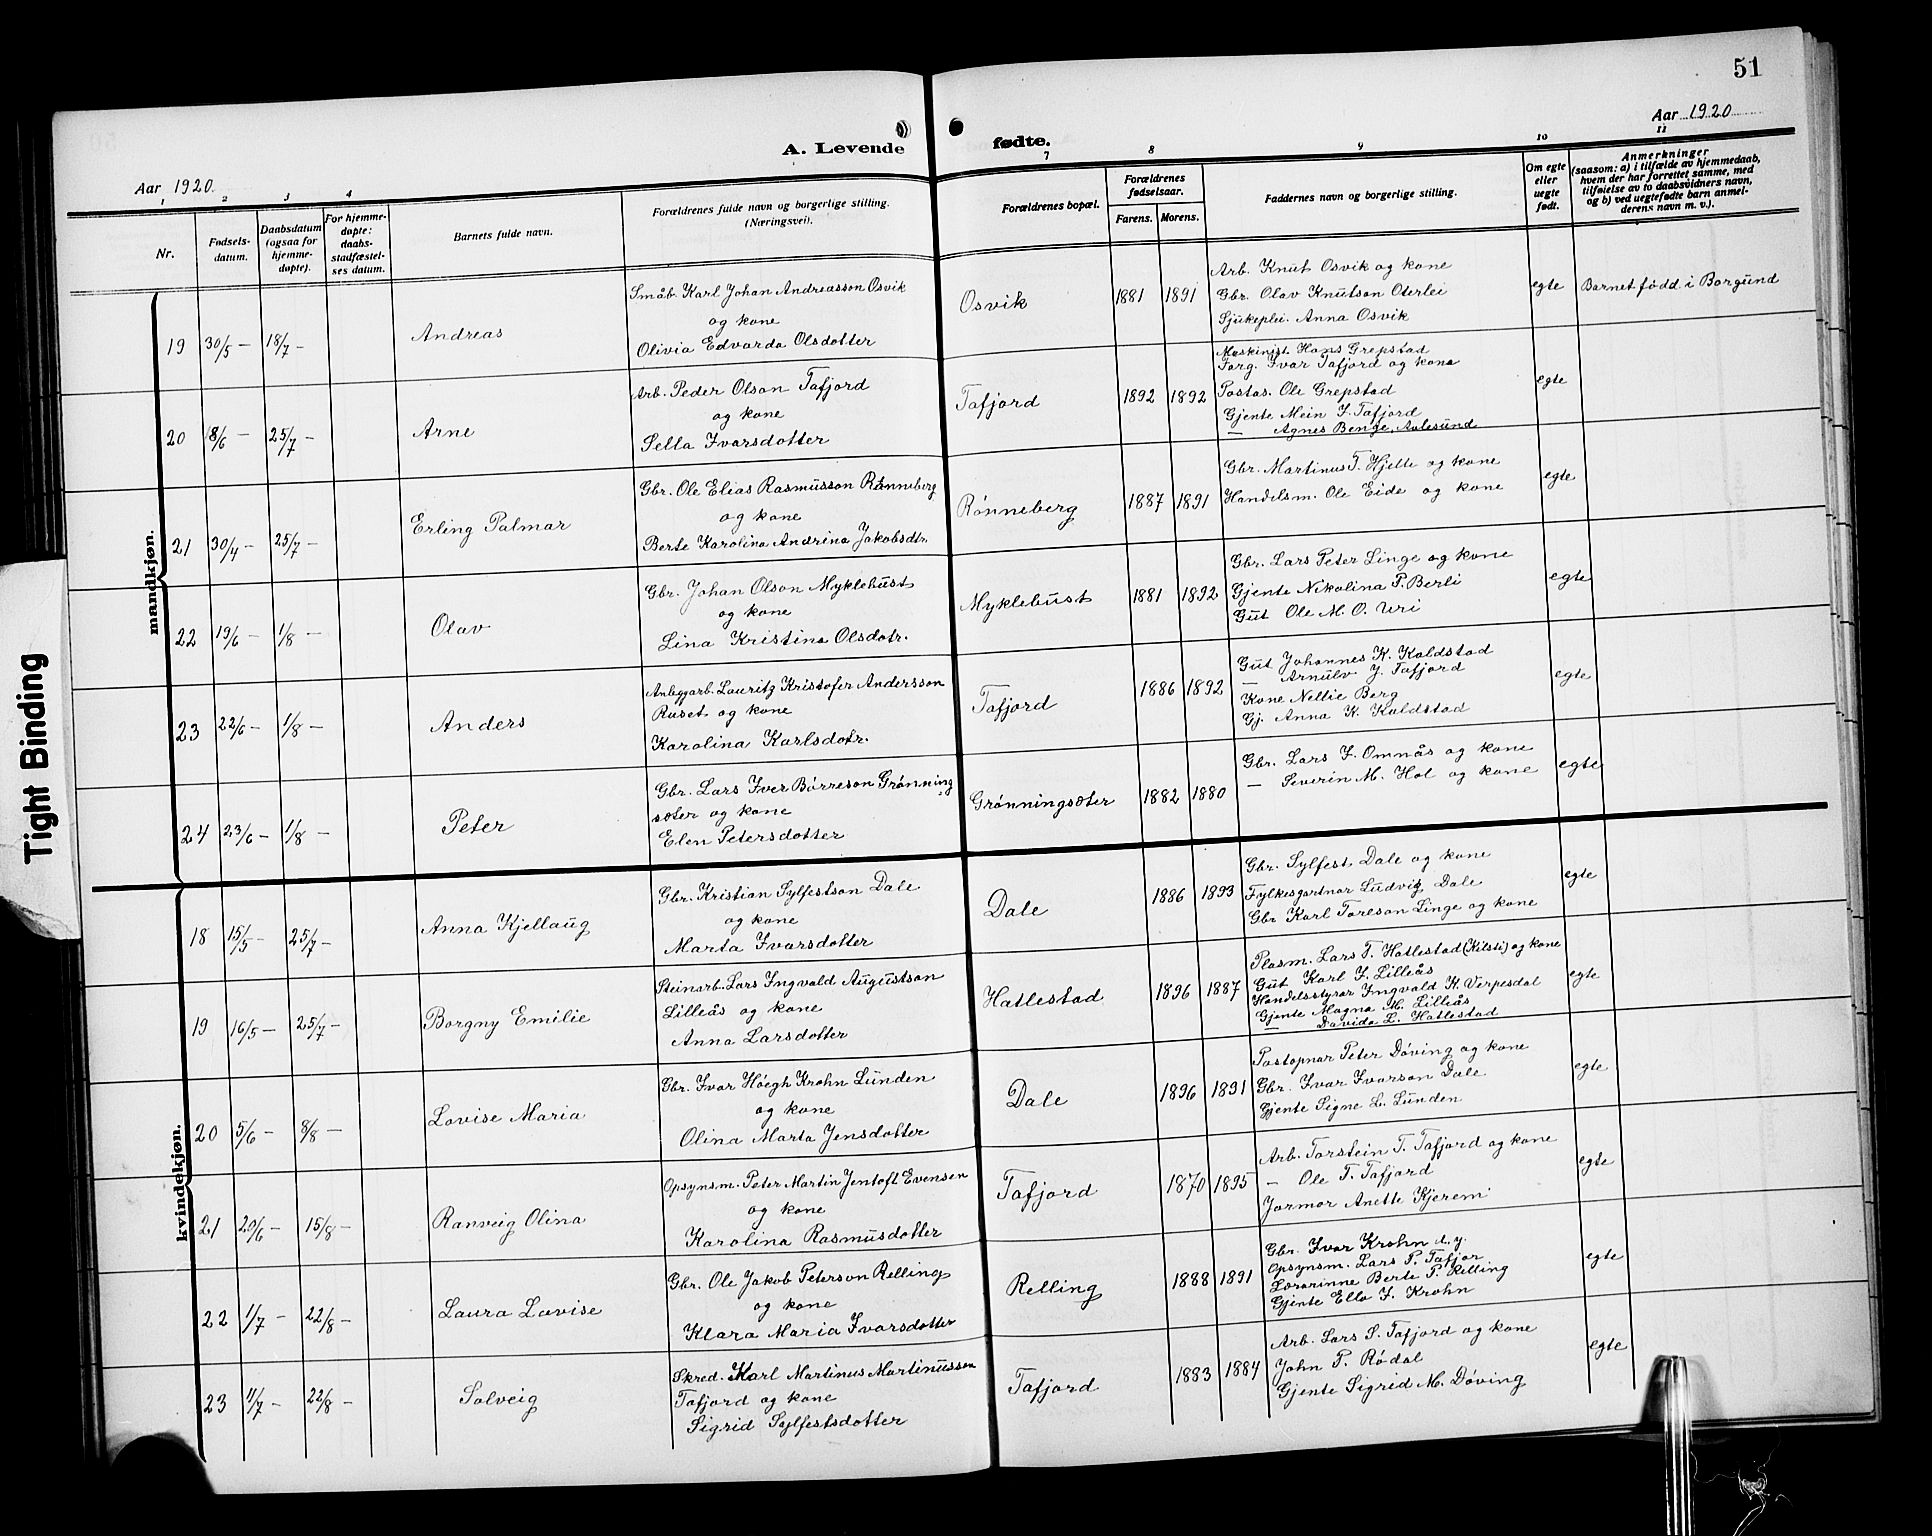 51
Aar 1920
Aar 1920.
A. Levende fødte.
1 2 3 4 7 8 9 10 11
Nr.
Fødsels-
datum.
Daabsdatum
(ogsaa for
hjemme-
døpte).
For hjemme-
døpte:
daabs-
stadfæstel-
ses datum.
Barnets fulde navn.
Forældrenes fulde navn og borgerlige stilling.
(Næringsvei).
Forældrenes bopæl.
Forældrenes
fødselsaar.
Farens. Morens.
Faddernes navn og borgerlige stilling.
Om egte
eller
uegte
født.
Anmerkninger
(saasom: a) i tilfælde av hjemmedaab,
hvem der har forrettet samme, med
tilføielse av to daabsvidners navn,
og b) ved uegtefødte barn anmel-
derens navn m. v.).
Tight Binding
mandkjøn.
19 30/5 — 18/7 — Andreas
Småb. Karl Johan Andreasson Osvik
og kone
Olivia Edvarda Olsdotter
Osvik 1881 1891
Arb. Knut Osvik og kone
Gbr. Olav Knutson Oterlei
Sjukeplei. Anna Osvik
egte Barnet fødd i Borgund
20 18/6 — 25/7 — Arne
Arb. Peder Olson Tafjord
og kone
Sella Ivarsdotter
Tafjord 1892 1892
Maskinist Hans Grepstad
Forg. Ivar Tafjord og kona
Postas. Ole Grepstad
Gjente Mein I. Tafjord
— Agnes Benge, Aalesund
egte
21 30/4 — 25/7 — Erling Palmar
Gbr. Ole Elias Rasmusson Rønneberg
og kone
Berte Karolina Andrina Jakobsdtr.
Rønneberg 1887 1891
Gbr. Martinus T. Hjelle og kone
Handelsm. Ole Eide og kone
egte
22 19/6 — 1/8 — Olav
Gbr. Johan Olson Myklebust
og kone
Lina Kristina Olsdotr.
Myklebust 1881 1892
Gbr. Lars Peter Linge og kone
Gjente Nikolina P. Berli
Gut Ole M. O. Uri
egte
23 22/6 — 1/8 — Anders
Anleggarb. Lauritz Kristofer Andersson
Ruset og kone
Karolina Karlsdotr.
Tafjord 1886 1892
Gut Johannes K. Kaldstad
— Arnulv J. Tafjord
Kone Nellie Berg
Gj. Anna K. Kaldstad
egte
24 23/6 — 1/8 — Peter
Gbr. Lars Iver Børreson Grønning
sæter og kone
Elen Petersdotter
Grønningsæter 1882 1880
Gbr. Lars I. Ommås og kone
— Severin M. Hol og kone
egte
kvindekjøn.
18 15/5 — 25/7 — Anna Kjellaug
Gbr. Kristian Sylfestson Dale
og kone
Marta Ivarsdotter
Dale 1886 1893
Gbr. Sylfest Dale og kone
Fylkesgartnar Ludvig Dale
Gbr Karl Torleson Linge og kone
egte
19 16/5 — 25/7 — Borgny Emilie
Steinarb. Lars Ingvald Augustson
Lilleås og kone
Anna Larsdotter
Hatlestad 1896 1887
Plasm. Lars T. Hatlestad (Kilsti) og kone
Gut Karl I. Lilleås
Handelsstyrar Ingvald K. Verpesdal
Gjente Magna M. Lilleås
— Davida L. Hatlestad
egte
20 5/6 — 8/8 — Lovise Maria
Gbr. Ivar Høegh Krohn Lunden
og kone
Olina Marta Jensdotter
Dale 1896 1891
Postopnar Peter Døving og kone
Gbr. Ivar Ivarson Dale
Gjente Signe L. Lunden
egte
21 20/6 — 15/8 — Ranveig Olina
Opsynsm. Peter Martin Jentoft Evensen
og kone
Karolina Rasmusdotter
Tafjord 1870 1895
Arb. Torstein T. Tafjord og kone
— Ole T. Tafjord
Jormor Anette Kjerem
egte
22 1/7 — 22/8 — Laura Lovise
Gbr. Ole Jakob Peterson Relling
og kone
Klara Maria Ivarsdotter
Relling 1888 1891
Gbr. Ivar Krohn d.y.
Opsynsm. Lars P. Tafjor
Lærarinne Berte P. Relling
Gjente Ella I. Krohn
egte
23 1/7 — 22/8 — Solveig
Skred. Karl Martinus Martinusson
Tafjord og kone
Sigrid Sylfestsdotter
Tafjord 1883 1884
Arb. Lars S. Tafjord og kone
John P. Rødal
Gjente Sigrid M. Døving
egte